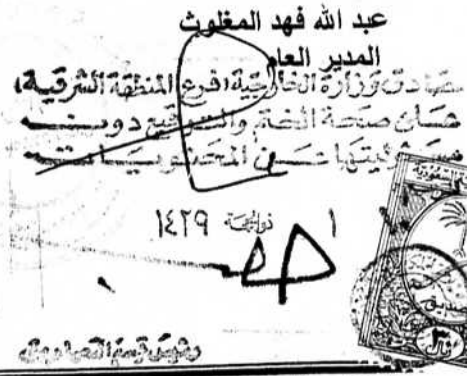 عبد الله فهد المغلوث
المدير العام
تصادق وزارة الخارجية، فرع المنطقة الشرقية،
على صحة الختم والتوقيع دون
مسئوليتها عن المحتويات
١ ذوالحجة ١٤٢٩
رئيس قسم التصاديق
٣٠ ريال